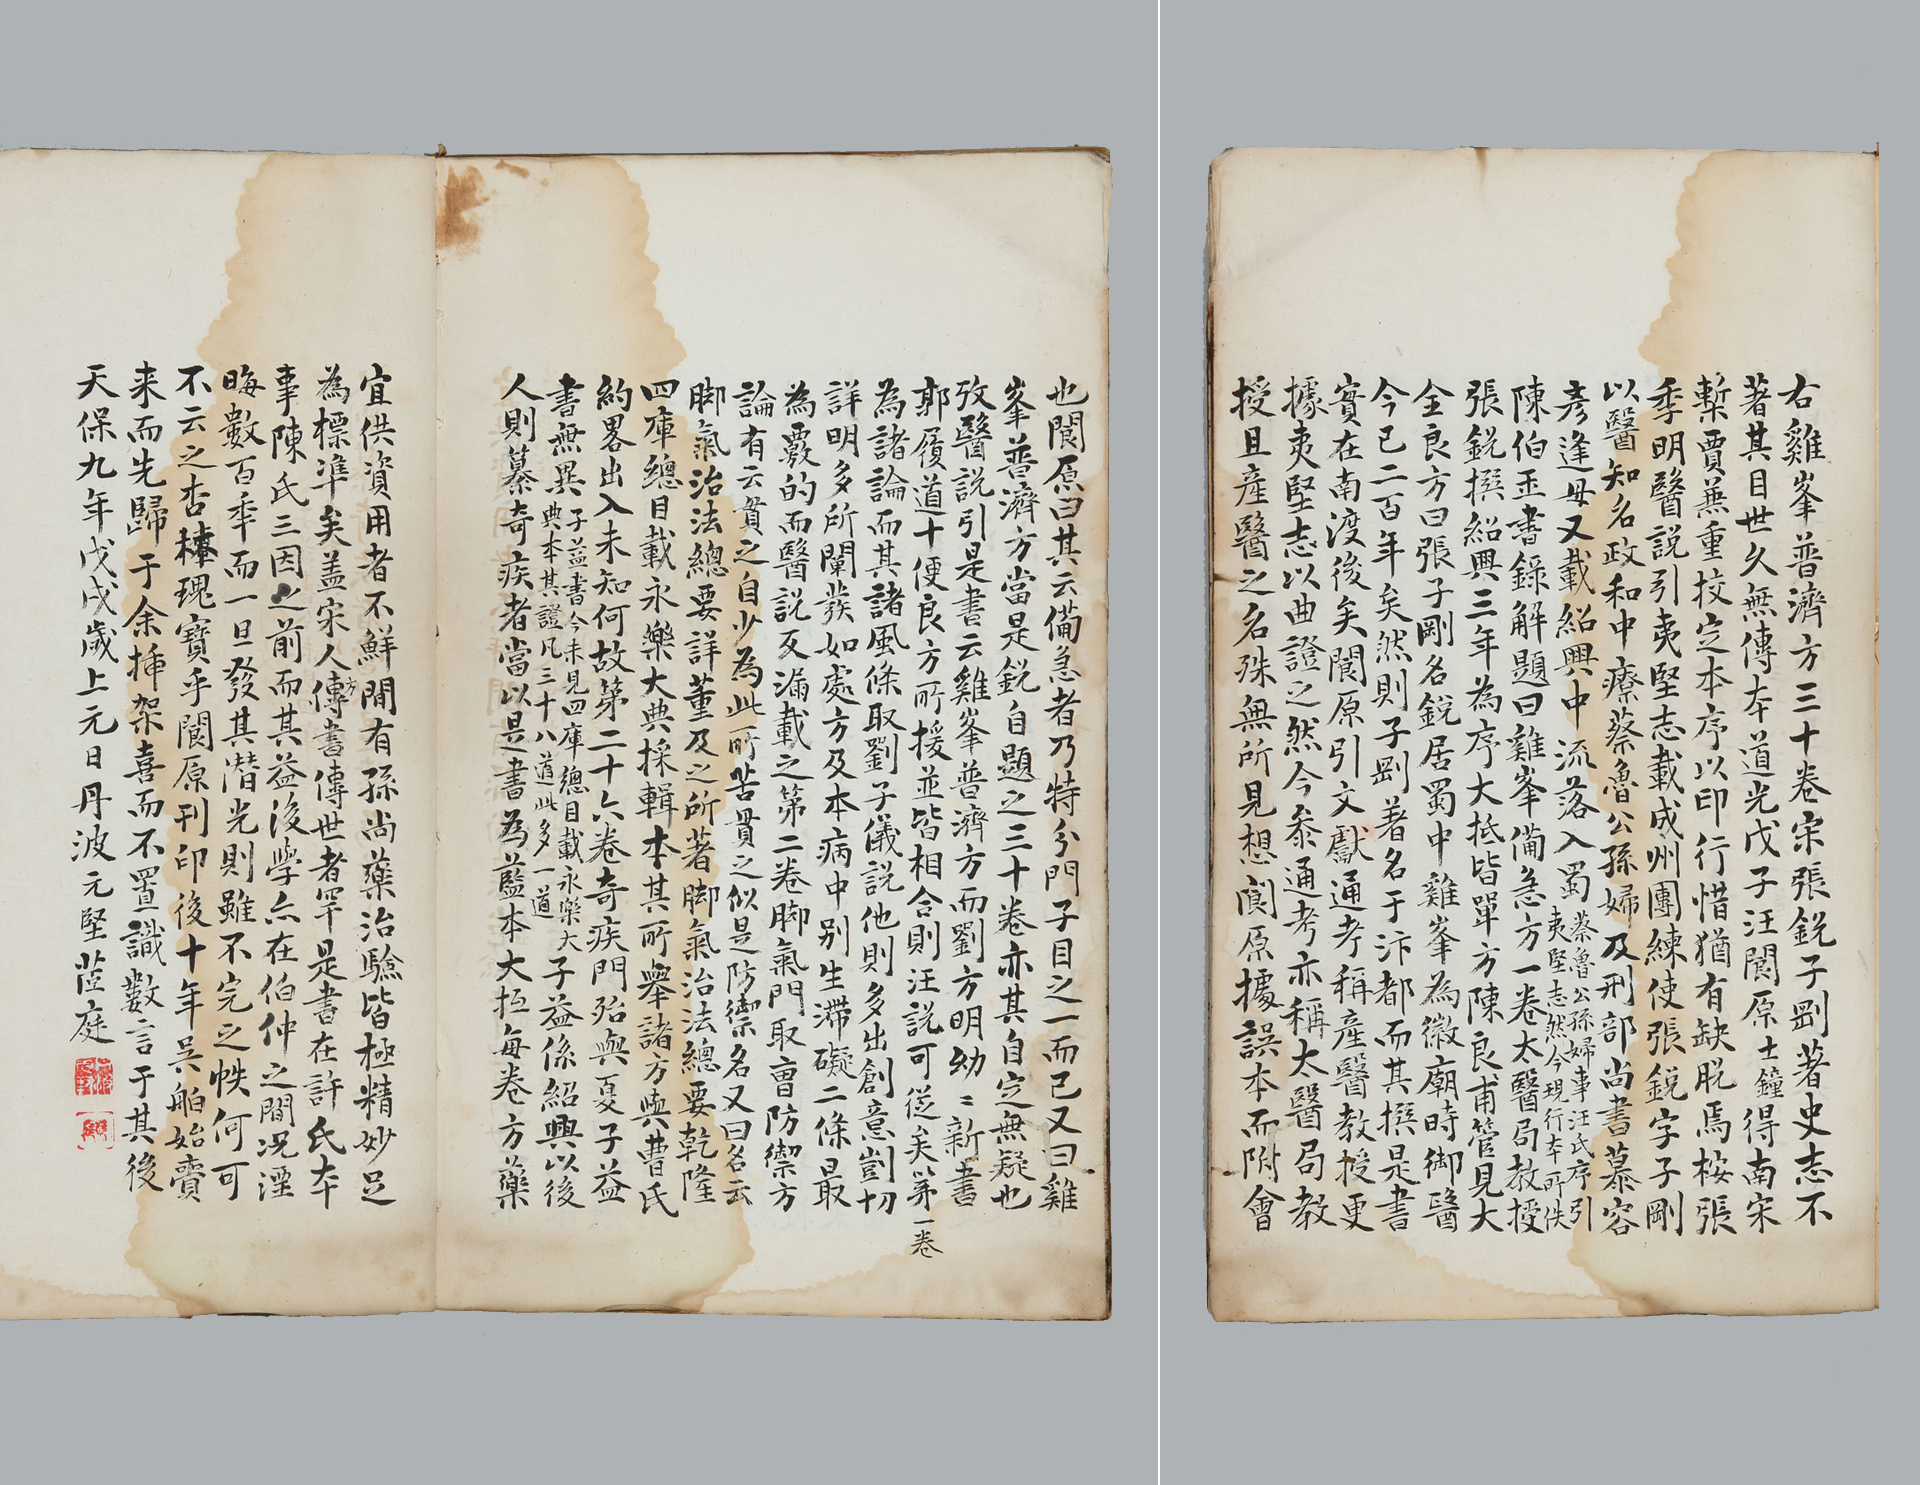 右雞峯普濟方三十卷宋張銳子剛著史志不
著其目世久無傳本道光戊子汪閬原士鐘得南宋
槧賈兼重挍定本序以印行惜猶有缺脫焉桉張
季明醫説引夷堅志載成州團練使張銳字子剛
以醫知名政和中療蔡魯公孫婦及刑部尚書慕容
彥逢母又載紹興中流落入蜀
蔡魯公孫婦事汪氏序引
夷堅志然今現行本所佚
陳伯玉書錄解題曰雞峯備急方一卷太醫局教授
張銳撰紹興三年為序大抵皆單方陳良甫管見大
全良方曰張子剛名銳居蜀中雞峯為徽廟時御醫
今已二百年矣然則子剛著名于汴都而其撰是書
實在南渡後矣閬原引文獻通考稱產醫教授更
據夷堅志以曲證之然今叅通考亦稱太醫局教
授且產醫之名殊無所見想閬原據誤本而附會
也閬原曰其云備急者乃特分門子目之一而已又曰雞
峯普濟方當是銳自題之三十卷亦其自定無疑也
攷醫説引是書云雞峯普濟方而劉方明幼〻新書
郭履道十便良方所援並皆相合則汪説可從矣第一卷
為諸論而其諸風條取劉子儀説他則多出創意剴切
詳明多所闡發如處方及本病中別生滯礙二條最
為覈的而醫説反漏載之第二卷脚氣門取曹防禦方
論有云貫之自少為此所苦貫之似是防禦名又曰名云
脚氣治法總要詳董及之所著脚氣治法總要乾隆
四庫總目載永樂大典採輯本其所舉諸方與曹氏
約畧出入未知何故第二十六卷奇疾門殆與夏子益
書無異
子益書今未見四庫總目載永樂大
典本其證凡三十八道此多一道
子益係紹興以後
人則纂奇疾者當以是書為藍本大抵每卷方藥
宜供資用者不鮮間有孫尚藥治驗皆極精妙足
為標準矣蓋宋人方書傳世者罕是書在許氏本
事陳氏三因之前而其益後學亦在伯仲之間況湮
晦數百年而一旦發其潛光則雖不完之帙何可
不云之杏林瑰寶乎閬原刊印後十年吳舶始賣
来而先歸于余挿架喜而不置識數言于其後
天保九年戊戌歲上元日丹波元堅茝庭